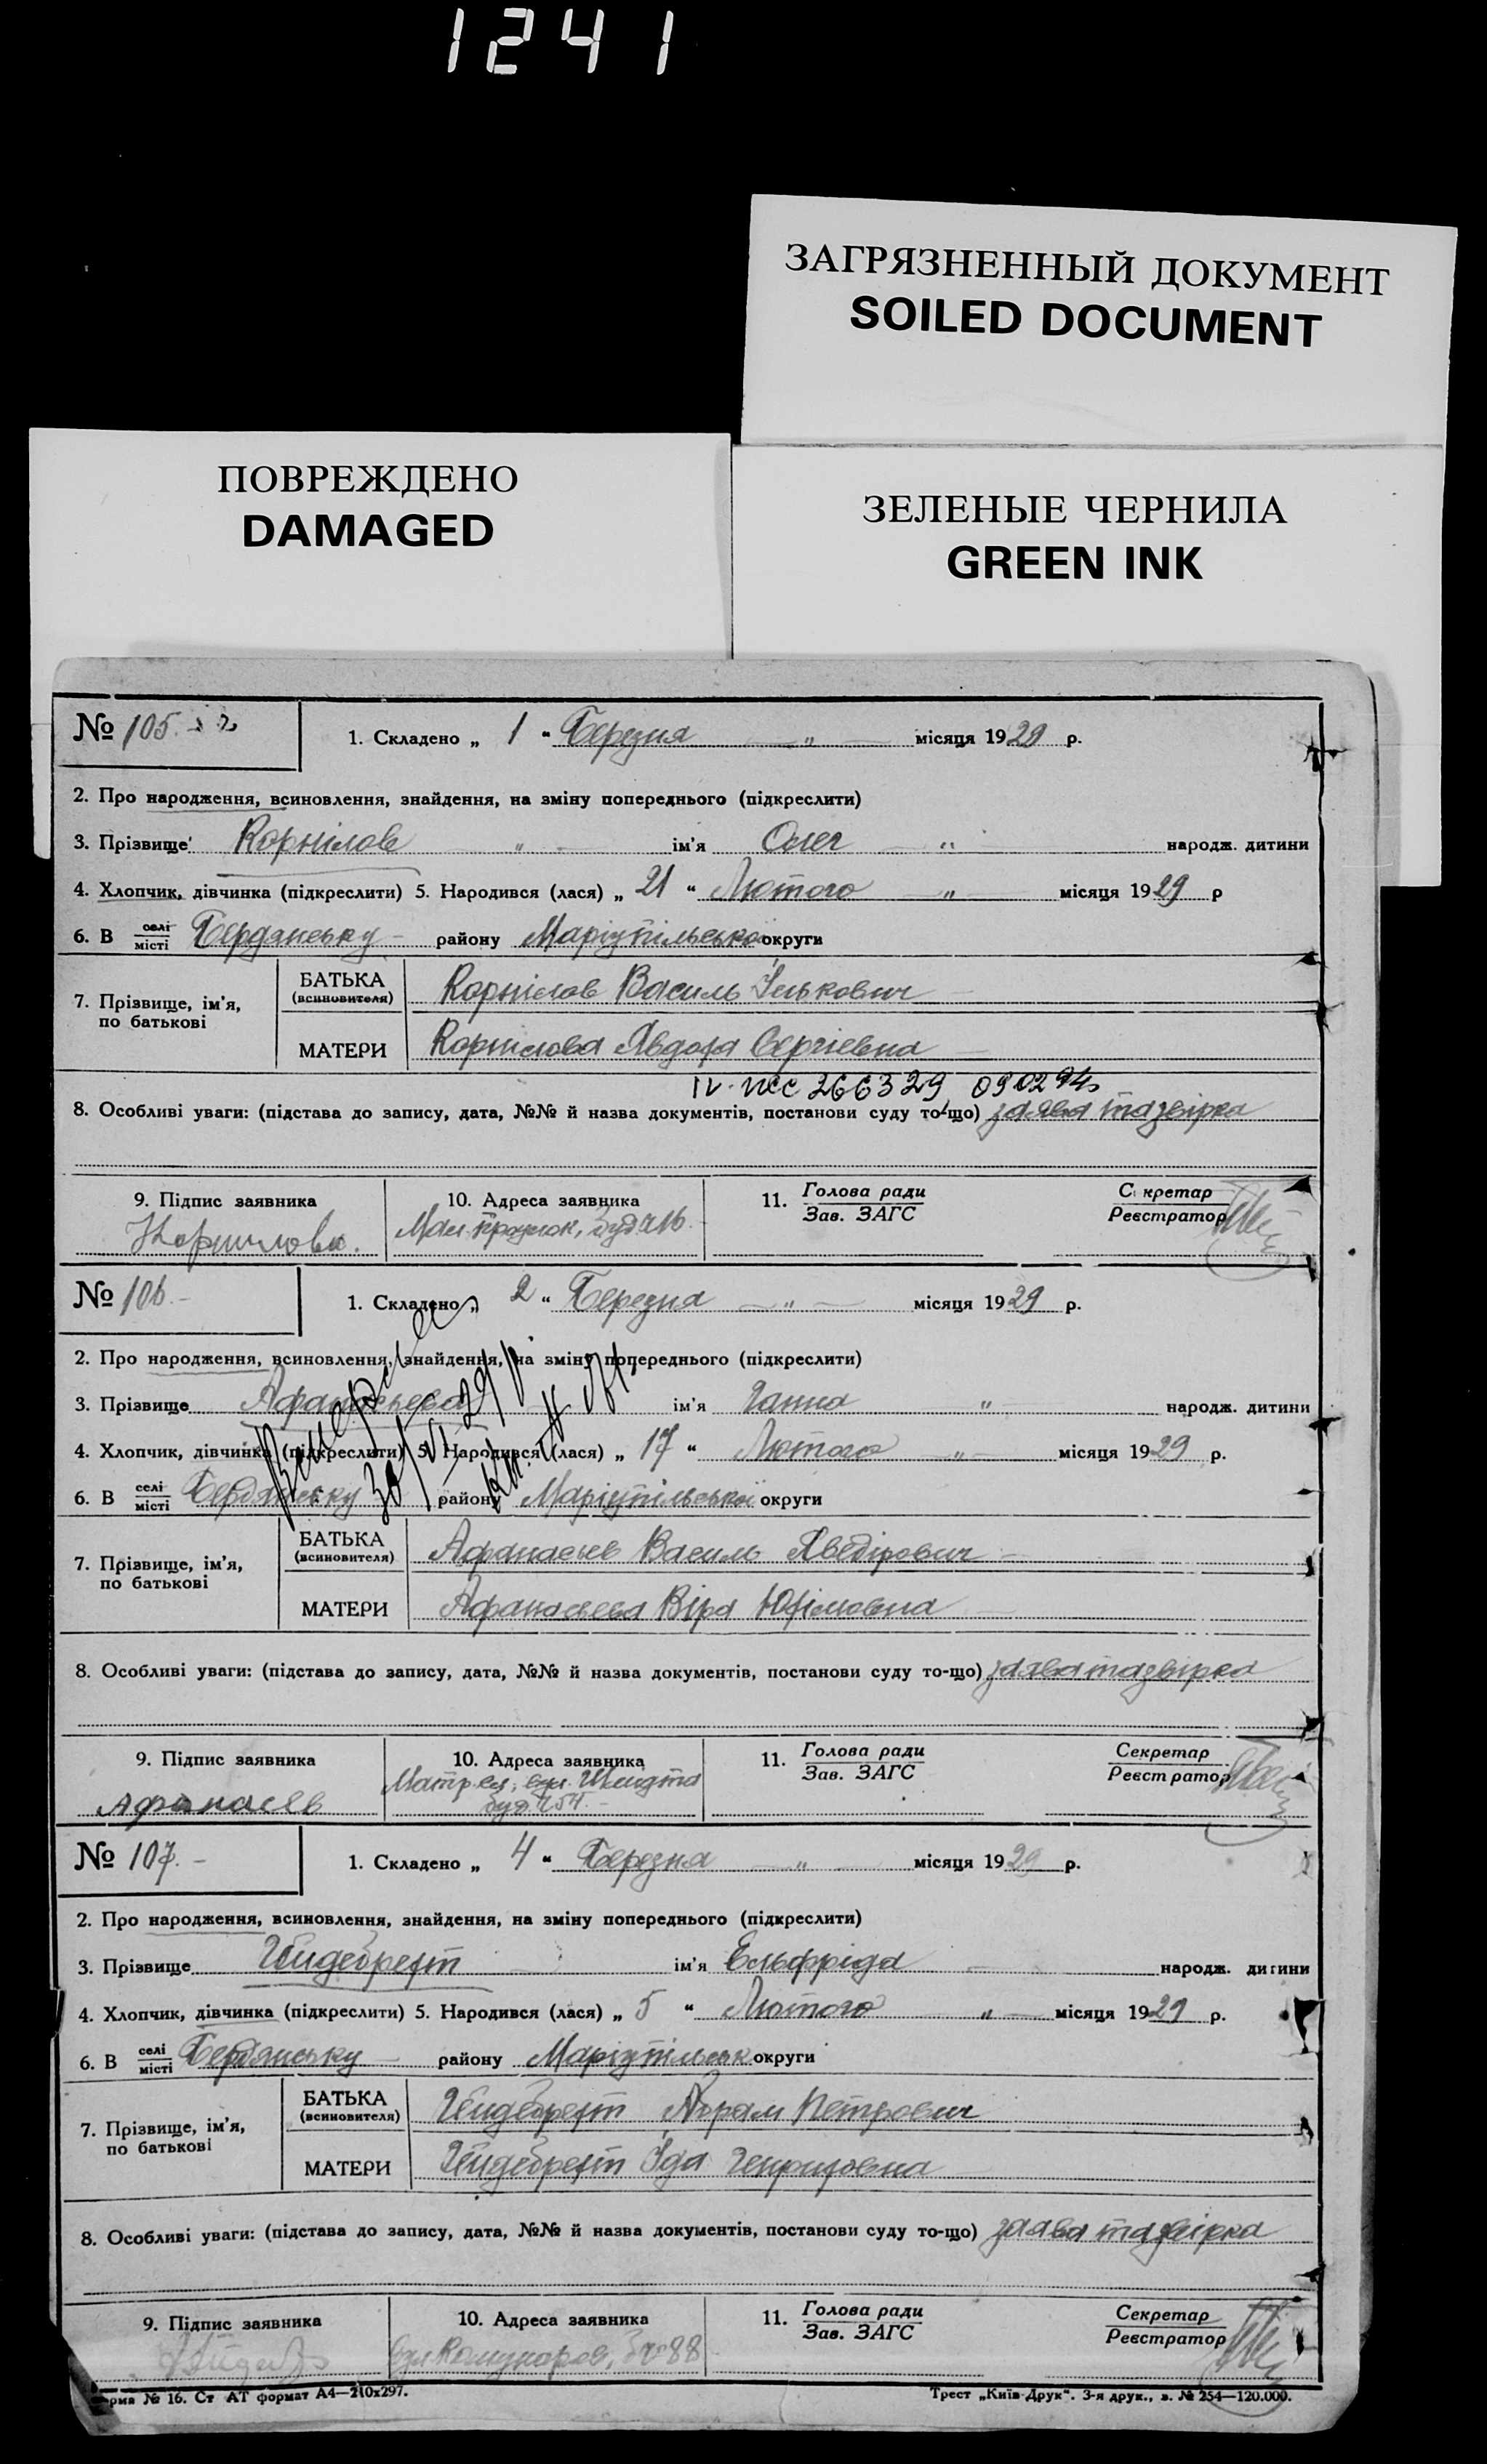 1241
ЗАГРЯЗНЕННЫЙ ДОКУМЕНТ
SOILED DOCUMENT
ПОВРЕЖДЕНО
DAMAGED
ЗЕЛЕНЫЕ ЧЕРНИЛА
GREEN INK
№ 105. 1. Складено „ 1 “ Березня — „ — місяця 1929 р.
2. Про народження, всиновлення, знайдення, на зміну попереднього (підкреслити)
3. Прізвище Корнілов „ ім'я Олег „ народж. дитини
4. Хлопчик, дівчинка (підкреслити) 5. Народився (лася) „ 21 “ Лютого „ місяця 1929 р
6. В селі місті Бердянську району Маріупільської округи
7. Прізвище, ім'я, по батькові
БАТЬКА (всиновителя) Корнілов Василь Ількович
МАТЕРИ Корнілова Явдоха Сергіевна
266329 090294
8. Особливі уваги: (підстава до запису, дата, №№ й назва документів, постанови суду то-що) заява та звірка
9. Підпис заявника 10. Адреса заявника 11. Голова ради Зав. ЗАГС Секретар Реєстратор
Корнилова.
№ 106. — 1. Складено „ 2 “ Березня — „ — місяця 1929 р.
2. Про народження, всиновлення, знайдення, на зміну попереднього (підкреслити)
3. Прізвище Афанасьева ім'я Ганна „ народж. дитини
4. Хлопчик, дівчинка (підкреслити) 5. Народився (лася) „ 17 “ Лютого „ місяця 1929 р.
6. В селі місті Бердянську району Маріупільської округи
7. Прізвище, ім'я, по батькові
БАТЬКА (всиновителя) Афанасьев Василь
МАТЕРИ Афанасьева Віра Юхімовна
8. Особливі уваги: (підстава до запису, дата, №№ й назва документів, постанови суду то-що) заява та звірка
9. Підпис заявника 10. Адреса заявника 11. Голова ради Зав. ЗАГС Секретар Реєстратор
Афанасьев вул. Шмидта
№ 107. — 1. Складено „ 4 “ Березня — „ — місяця 1929 р.
2. Про народження, всиновлення, знайдення, на зміну попереднього (підкреслити)
3. Прізвище ім'я Ельфріда народж. дитини
4. Хлопчик, дівчинка (підкреслити) 5. Народився (лася) „ 5 “ Лютого „ місяця 1929 р.
6. В селі місті Бердянську району Маріупільськ округи
7. Прізвище, ім'я, по батькові
БАТЬКА (всиновителя) Абрам Петрович
МАТЕРИ Іда Генриховна
8. Особливі уваги: (підстава до запису, дата, №№ й назва документів, постанови суду то-що) заява та звірка
9. Підпис заявника 10. Адреса заявника 11. Голова ради Зав. ЗАГС Секретар Реєстратор
вул Комунаров, 88
№ 16. Ст АТ формат А4—210х297. Трест „Київ-Друк“. 3-я друк., з. № 254—120.000.